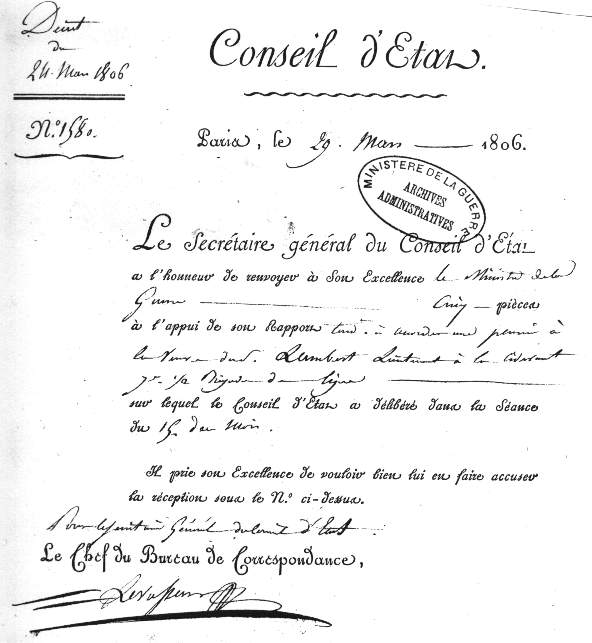 Décret
du
24. Mars 1806
N.º 1580.
Conseil d'Etat.
Paris, le 29. Mars 1806.
MINISTERE DE LA GUERRE
ARCHIVES
ADMINISTRATIVES
Le Secrétaire général du Conseil d'Etat
a l'honneur de renvoyer à Son Excellence le Ministre de la
Guerre Cinq pièces
à l'appui de son Rapport tend.t à accorder une pension à
la Veuve du S. Lambert Lieutenant à la ci-devant
1/2 Brigade de ligne
sur lequel le Conseil d'Etat a délibéré dans la Séance
du 15 du Mois.
Il prie son Excellence de vouloir bien lui en faire accuser
la réception sous le N.º ci-dessus.
Pour le Secrétaire Général du Conseil d'Etat
Le Chef du Bureau de Correspondance,
Levasseur